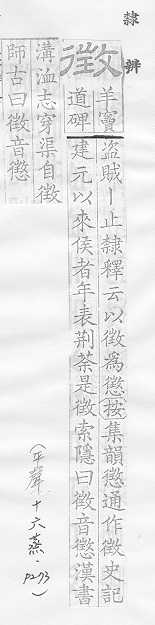 隸辨
徵
羊竇
道碑
盜賊丨止隸釋云以徵為懲按集韻懲通作徵史記
建元以來侯者年表荊荼是徵索隱曰徵音懲漢書
溝洫志穿渠自徵
師古曰徵音懲
(平聲十六蒸.P2-73)